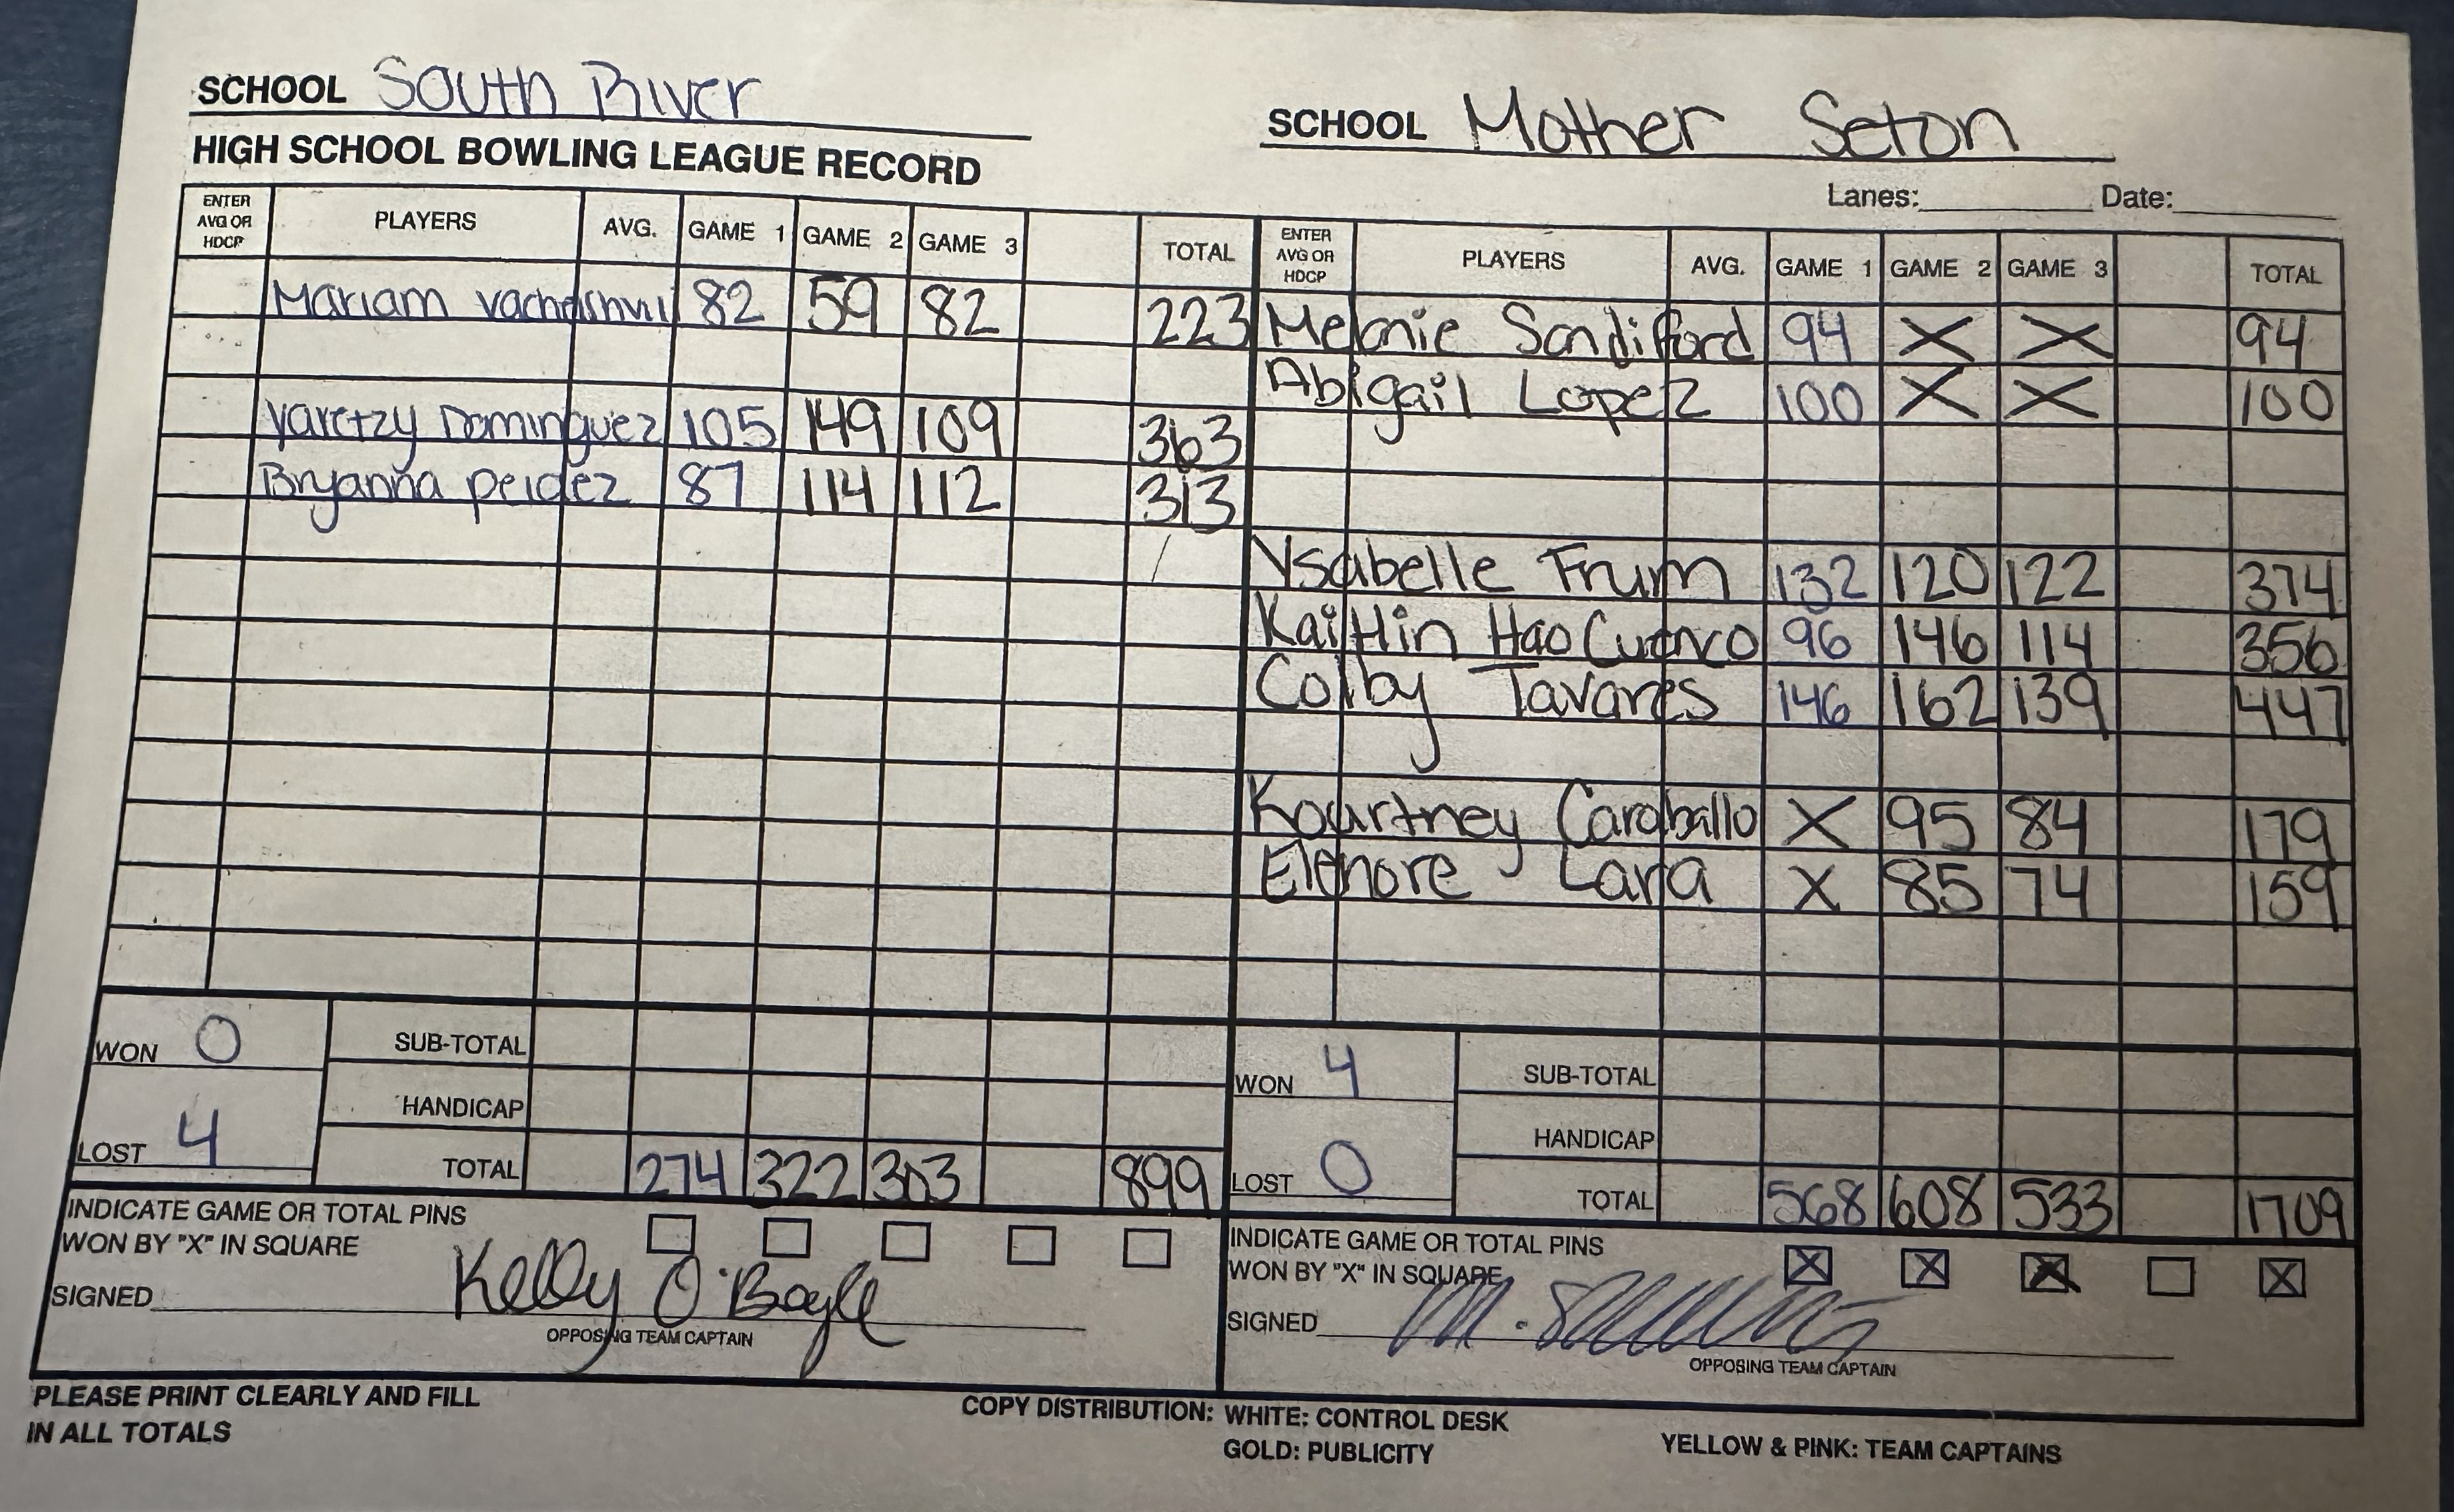 SCHOOL South River
SCHOOL Mother Seton
HIGH SCHOOL BOWLING LEAGUE RECORD
Lanes: Date:
ENTER AVG OR HDCP PLAYERS AVG. GAME 1 GAME 2 GAME 3 TOTAL
Mariam 82 59 82 223
Yaretzy Dominguez 105 149 109 363
Bryanna 87 114 112 313
WON 0
LOST 4
SUB-TOTAL
HANDICAP
TOTAL 274 322 303 899
INDICATE GAME OR TOTAL PINS
WON BY "X" IN SQUARE
SIGNED Kelly O'Boyle
OPPOSING TEAM CAPTAIN
ENTER AVG OR HDCP PLAYERS AVG. GAME 1 GAME 2 GAME 3 TOTAL
Melanie Sandiford 94 X X 94
Abigail Lopez 100 X X 100
Ysabelle Frum 132 120 122 374
Kaitlin Hao Cuenco 96 146 114 356
Colby Tavares 146 162 139 447
Kourtney Caraballo X 95 84 179
Elenore Lara X 85 74 159
WON 4
LOST 0
SUB-TOTAL
HANDICAP
TOTAL 568 608 533 1709
INDICATE GAME OR TOTAL PINS
WON BY "X" IN SQUARE X X X X
SIGNED M.
OPPOSING TEAM CAPTAIN
PLEASE PRINT CLEARLY AND FILL
IN ALL TOTALS
COPY DISTRIBUTION: WHITE: CONTROL DESK
GOLD: PUBLICITY
YELLOW & PINK: TEAM CAPTAINS